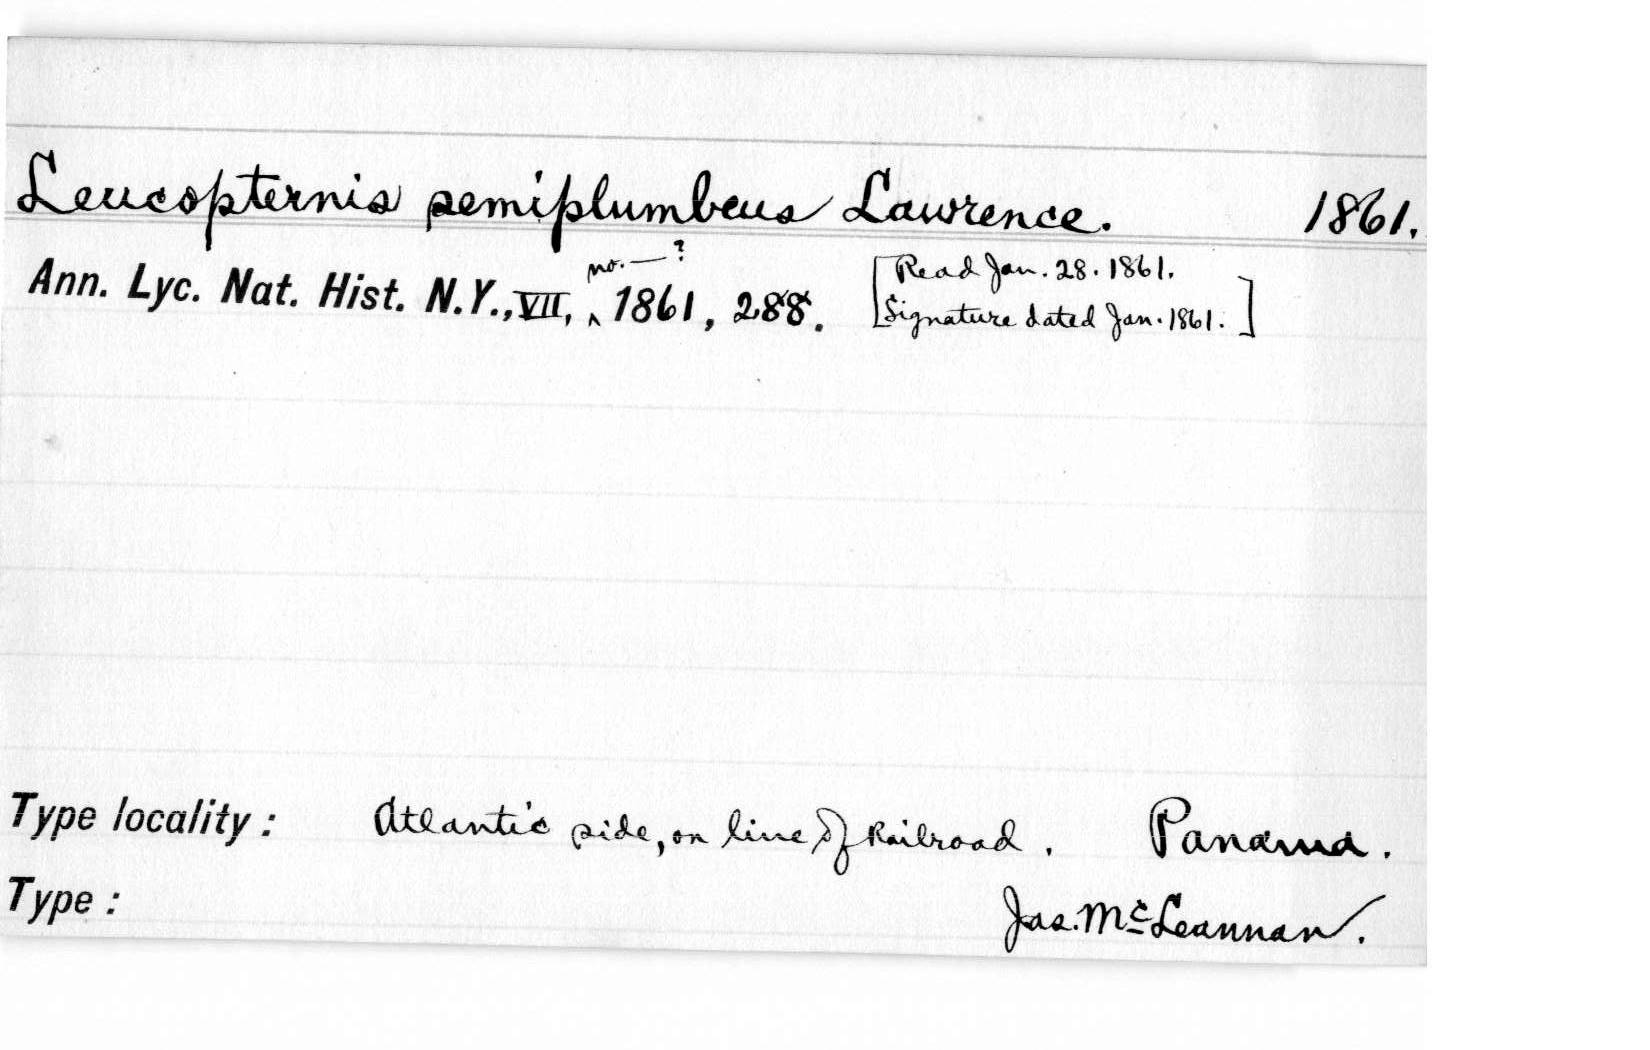 Leucopternis semiplumbeus Lawrence. 1861.
no. — ?
Ann. Lyc. Nat. Hist. N.Y., VII, ‸ 1861, 288. [Read Jan. 28. 1861.
Signature dated Jan. 1861.]
Type locality: Atlantic side, on line of Railroad. Panama.
Type: Jas. Mc Leannan.